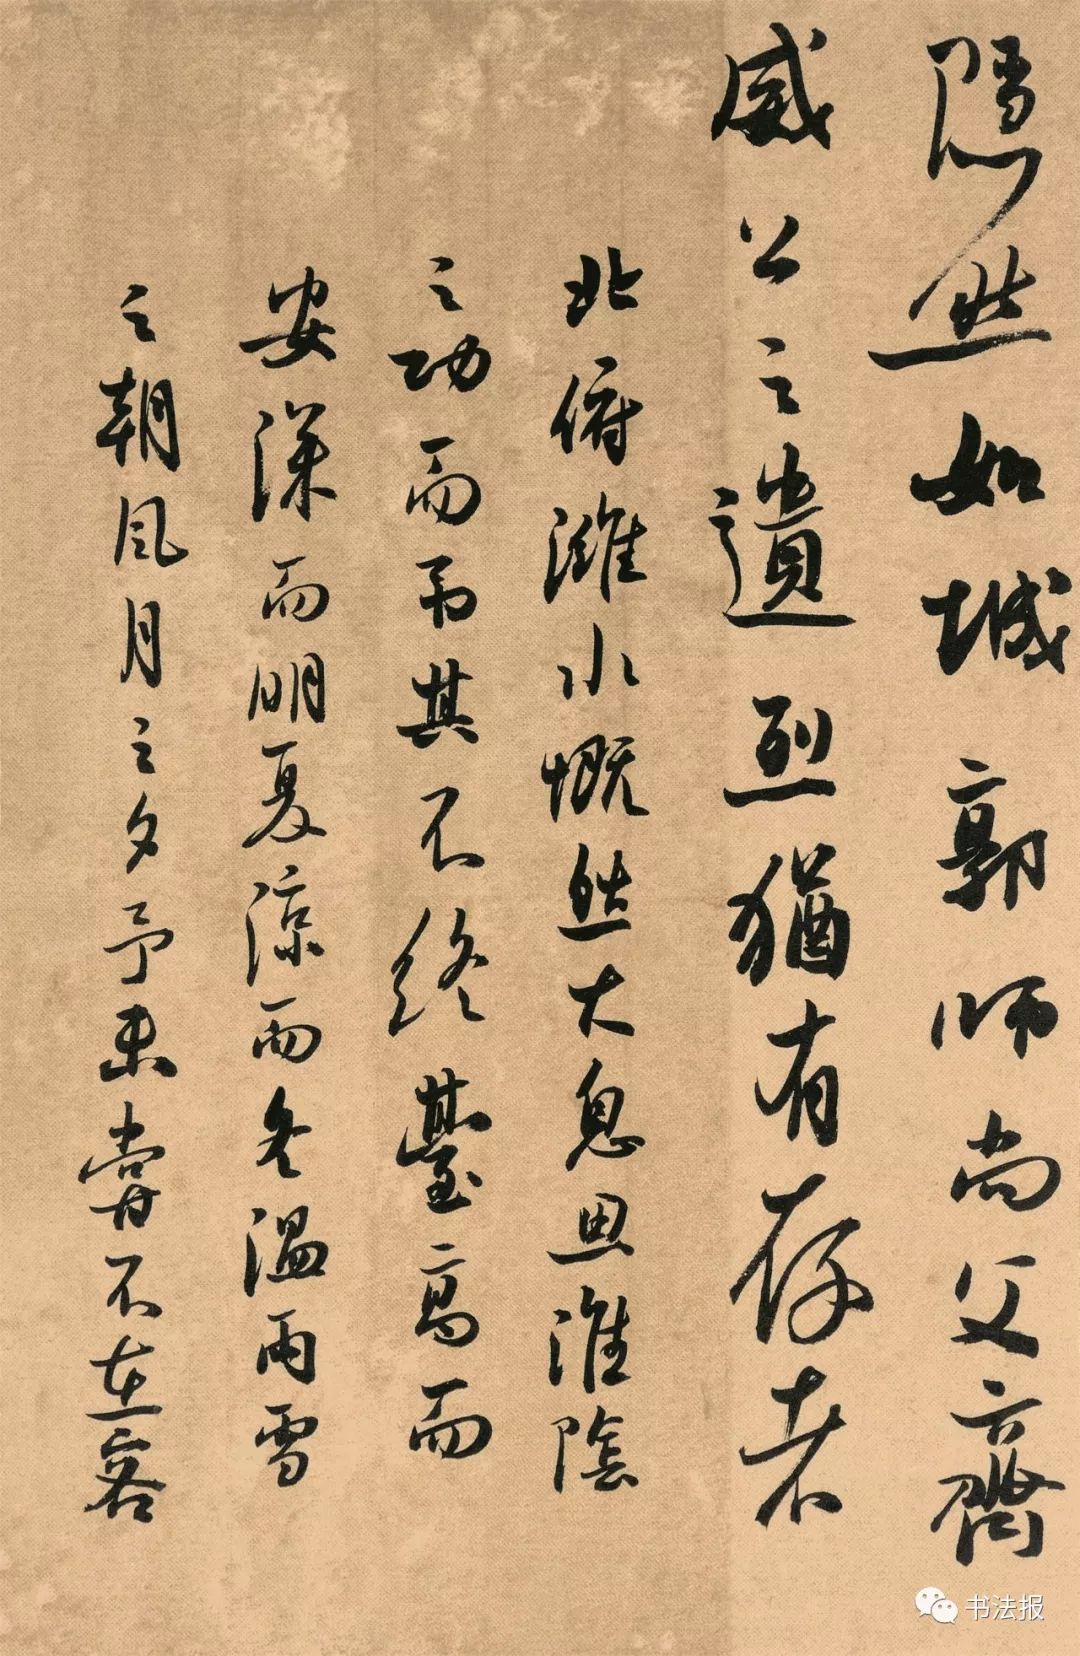 隱然如城郭師尚父齊
威公之遺烈猶有存者
北俯濰水慨然大息思淮陰
之功而弔其不終臺高而
安深而明夏涼而冬溫雨雪
之朝風月之夕予未嘗不在客
书法报